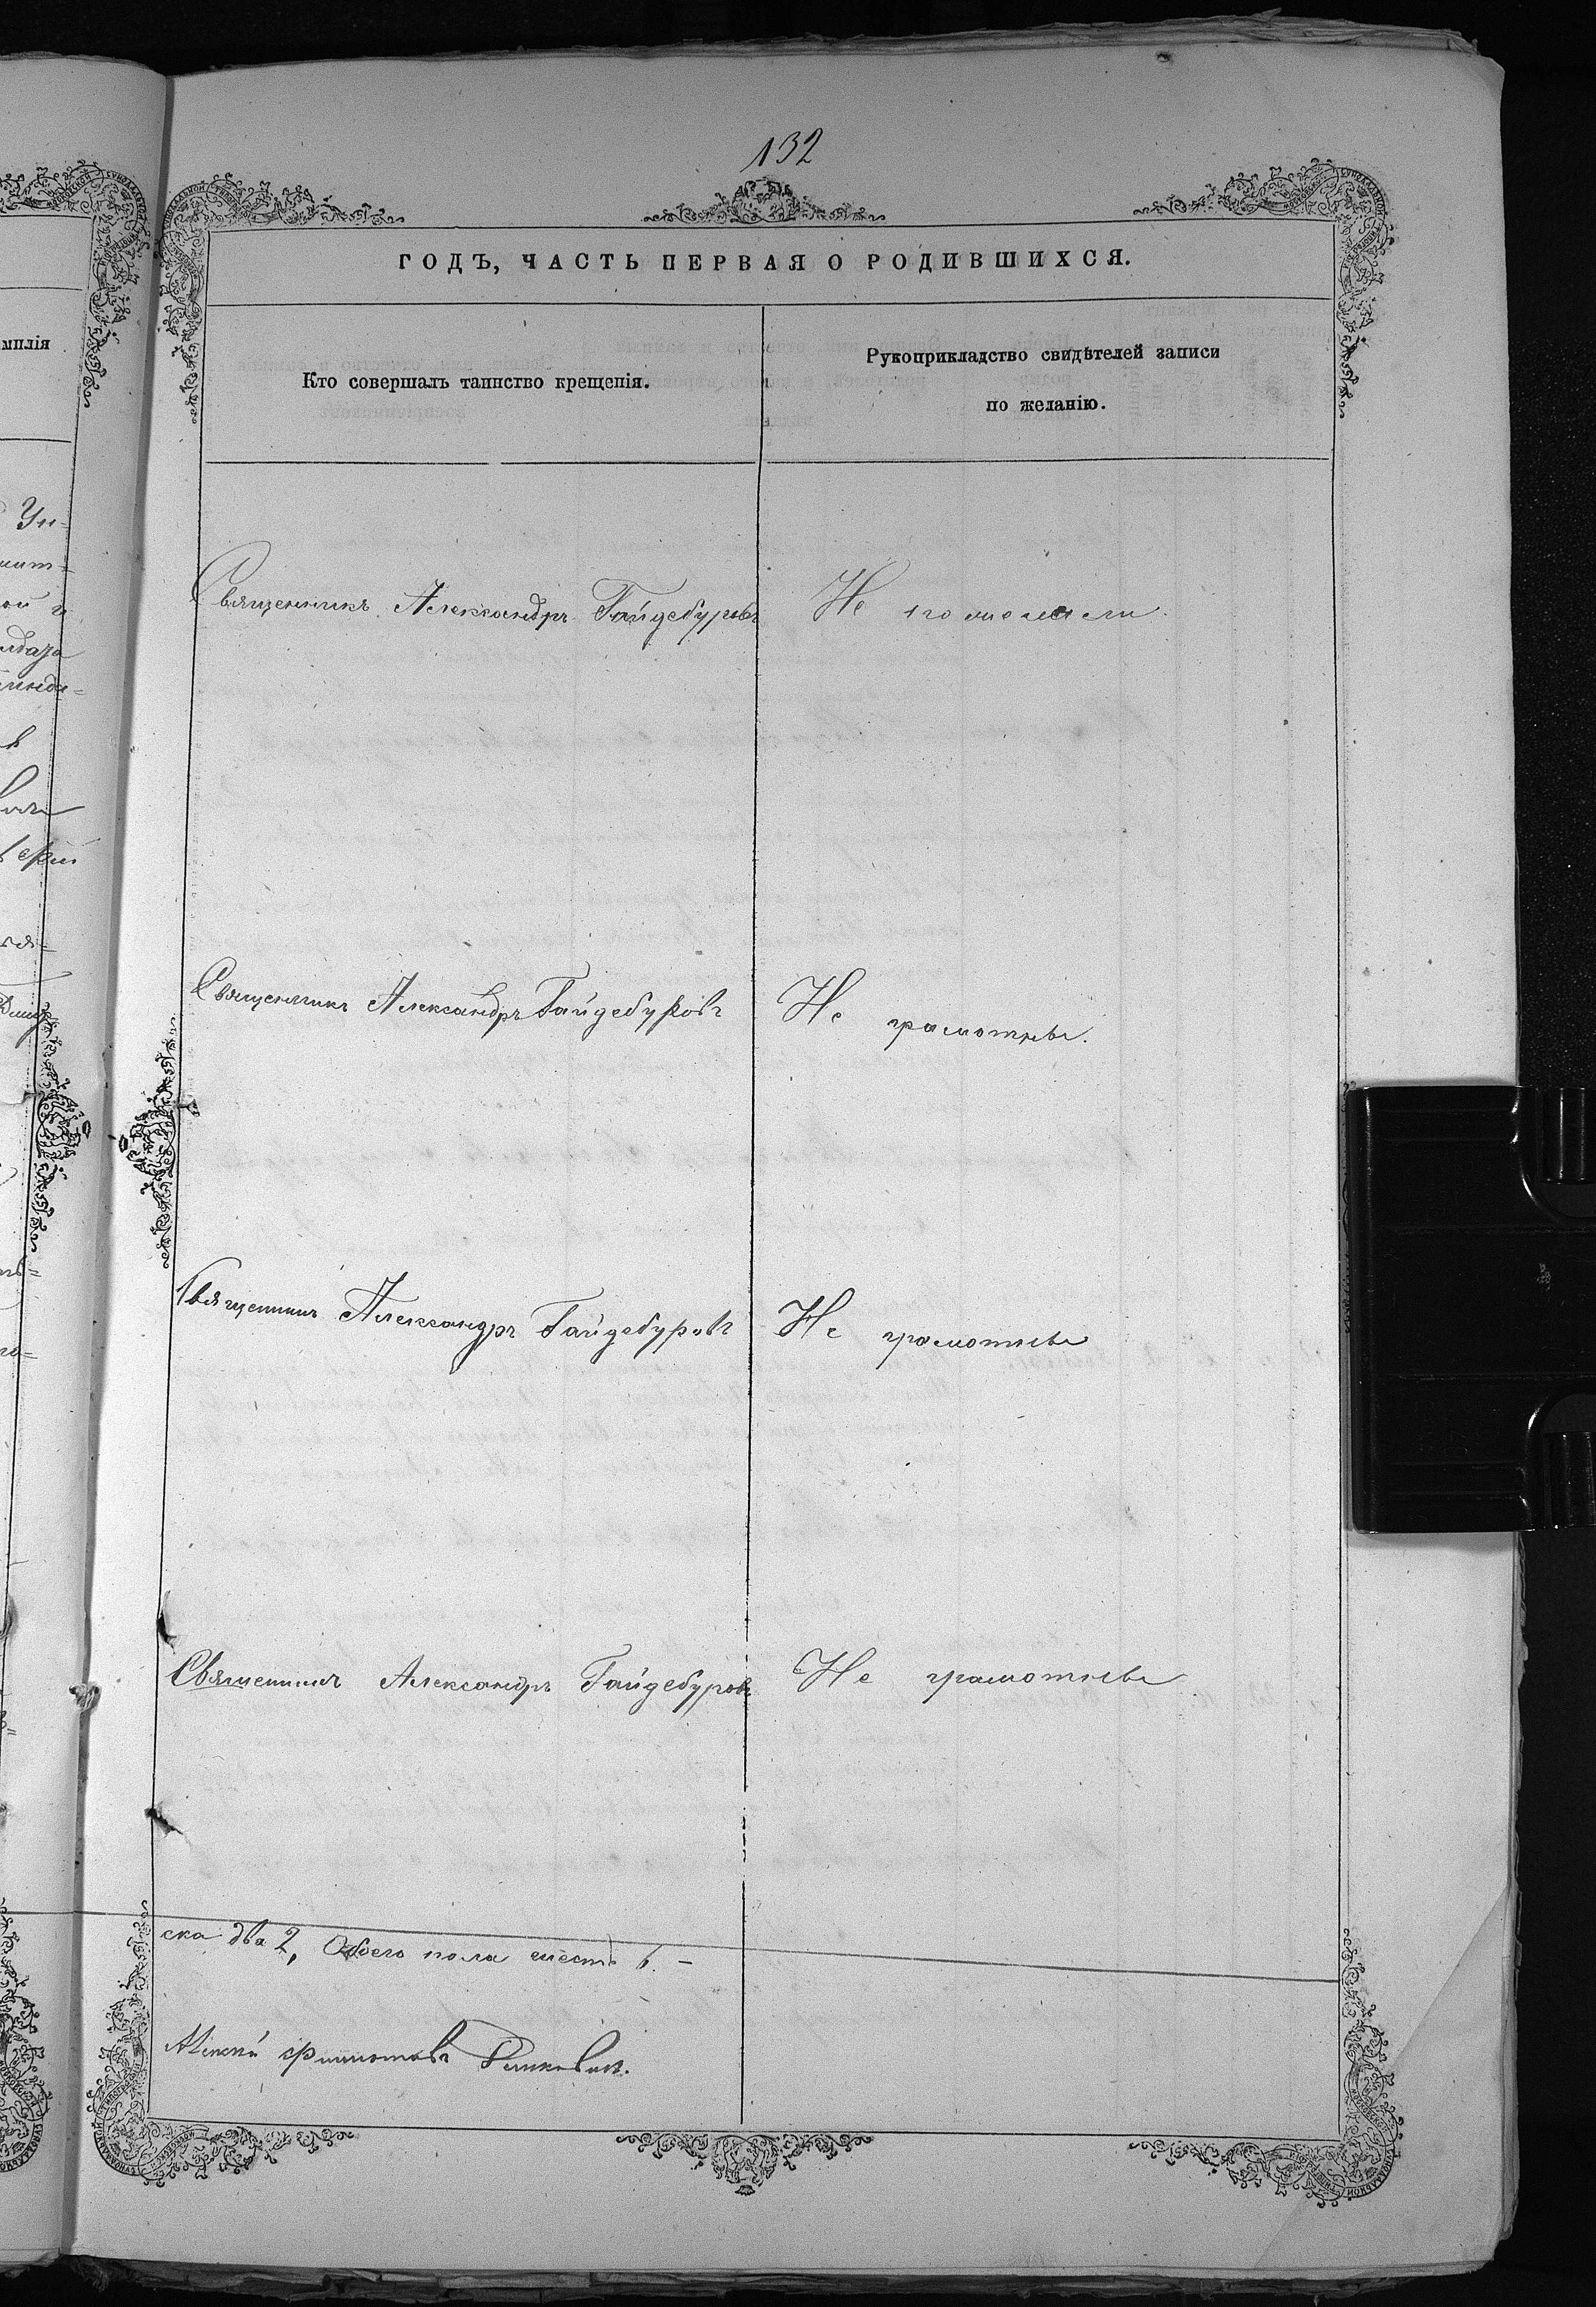 132
ГОДЪ, ЧАСТЬ ПЕРВАЯ О РОДИВШИХСЯ.
Кто совершалъ таинство крещенія.
Рукоприкладство свидѣтелей записи
по желанію.
Священникъ Александръ Гайдебуровъ
Не пожелали
Священникъ Александръ Гайдебуровъ
Не грамотны.
Священникъ Александръ Гайдебуровъ
Не грамотны
Священникъ Александръ Гайдебуровъ
Не грамотны
ска два 2, Обоего пола шесть 6. -